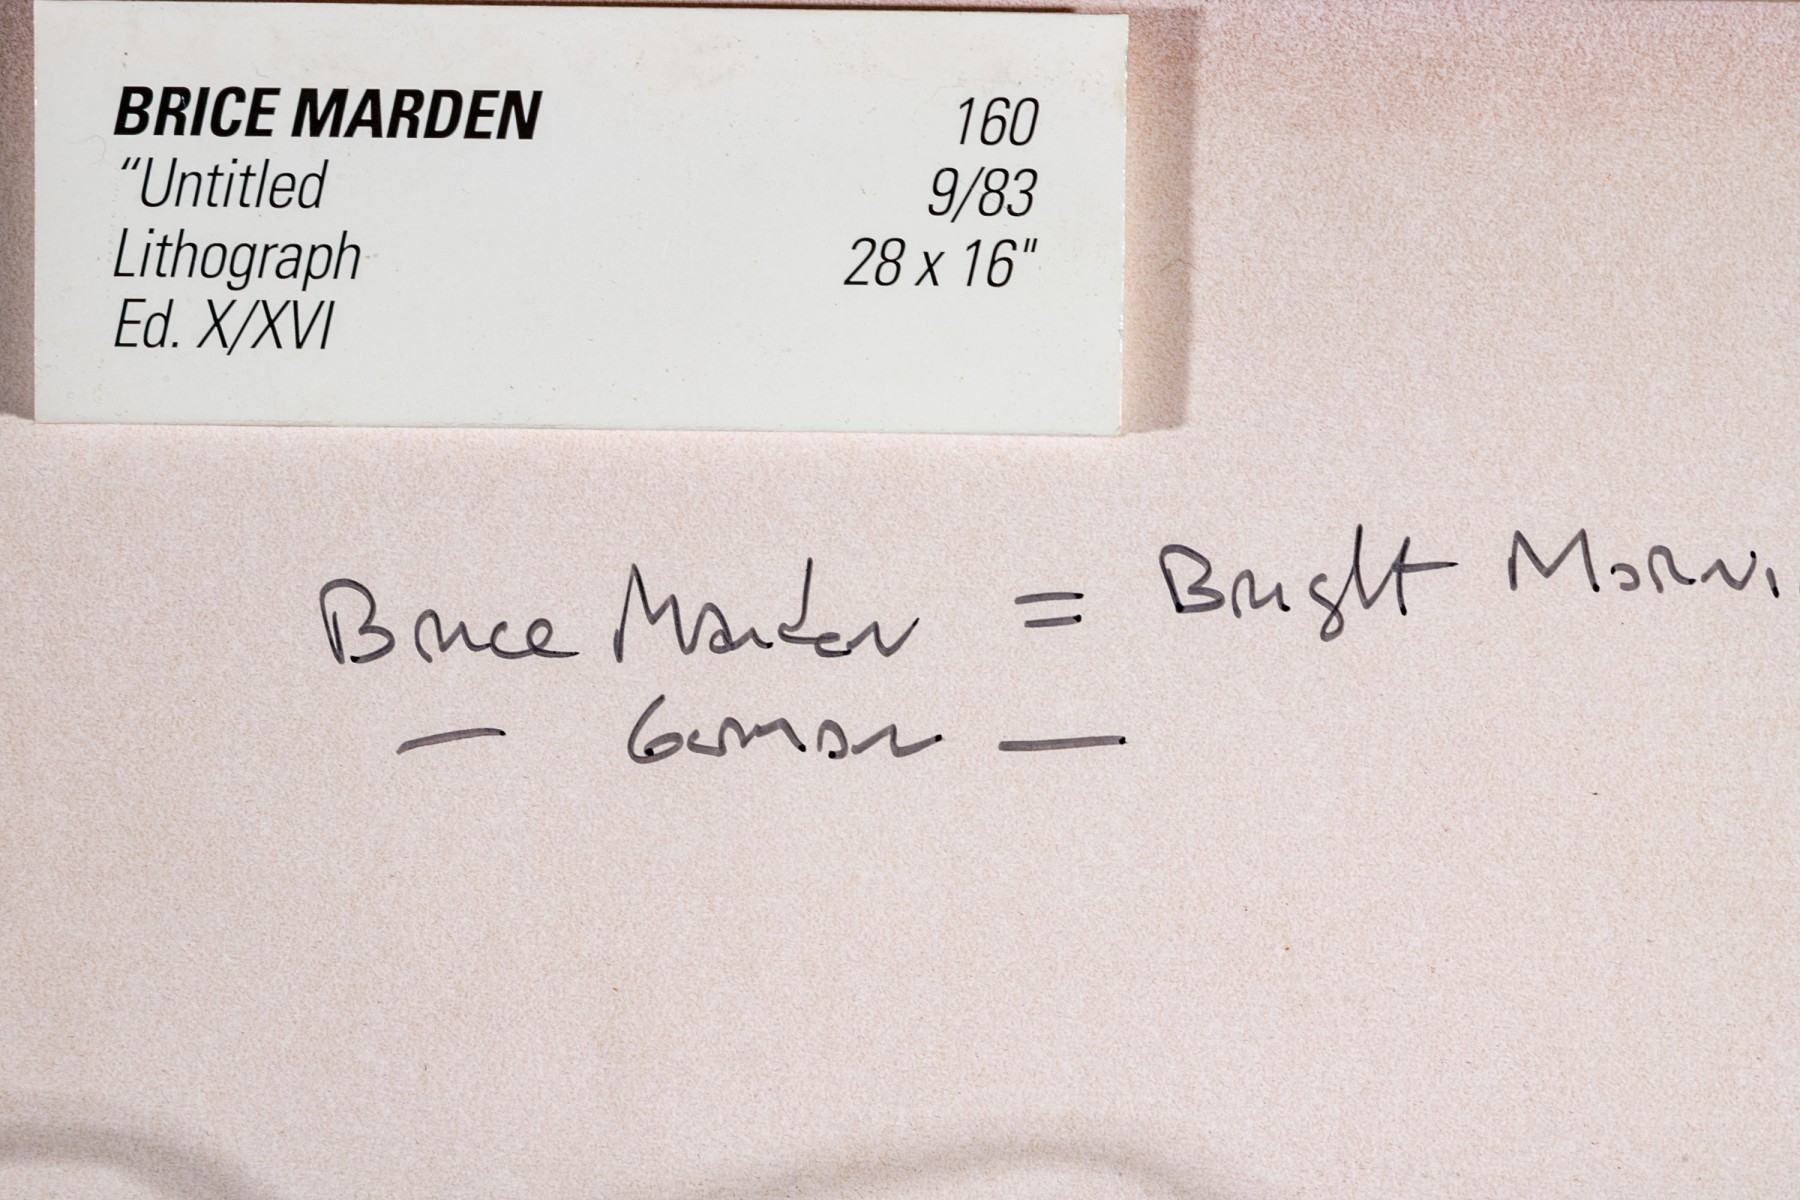 BRICE MARDEN 160
"Untitled 9/83
Lithograph 28 x 16"
Ed. X/XVI
Brice Marden = Bright
— German —